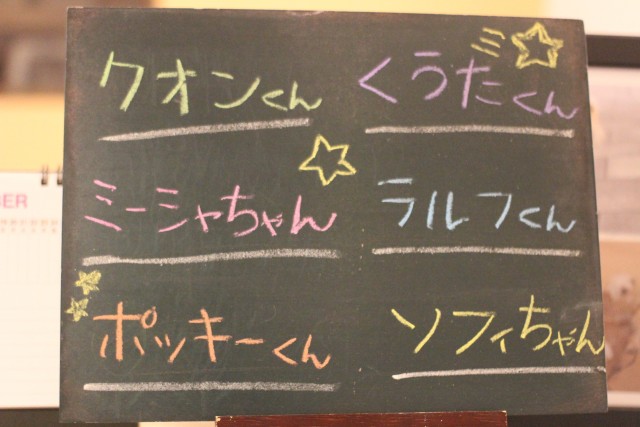 クオンくん
くうたくん
ミーシャちゃん
ラルフくん
ポッキーくん
ソフィちゃん